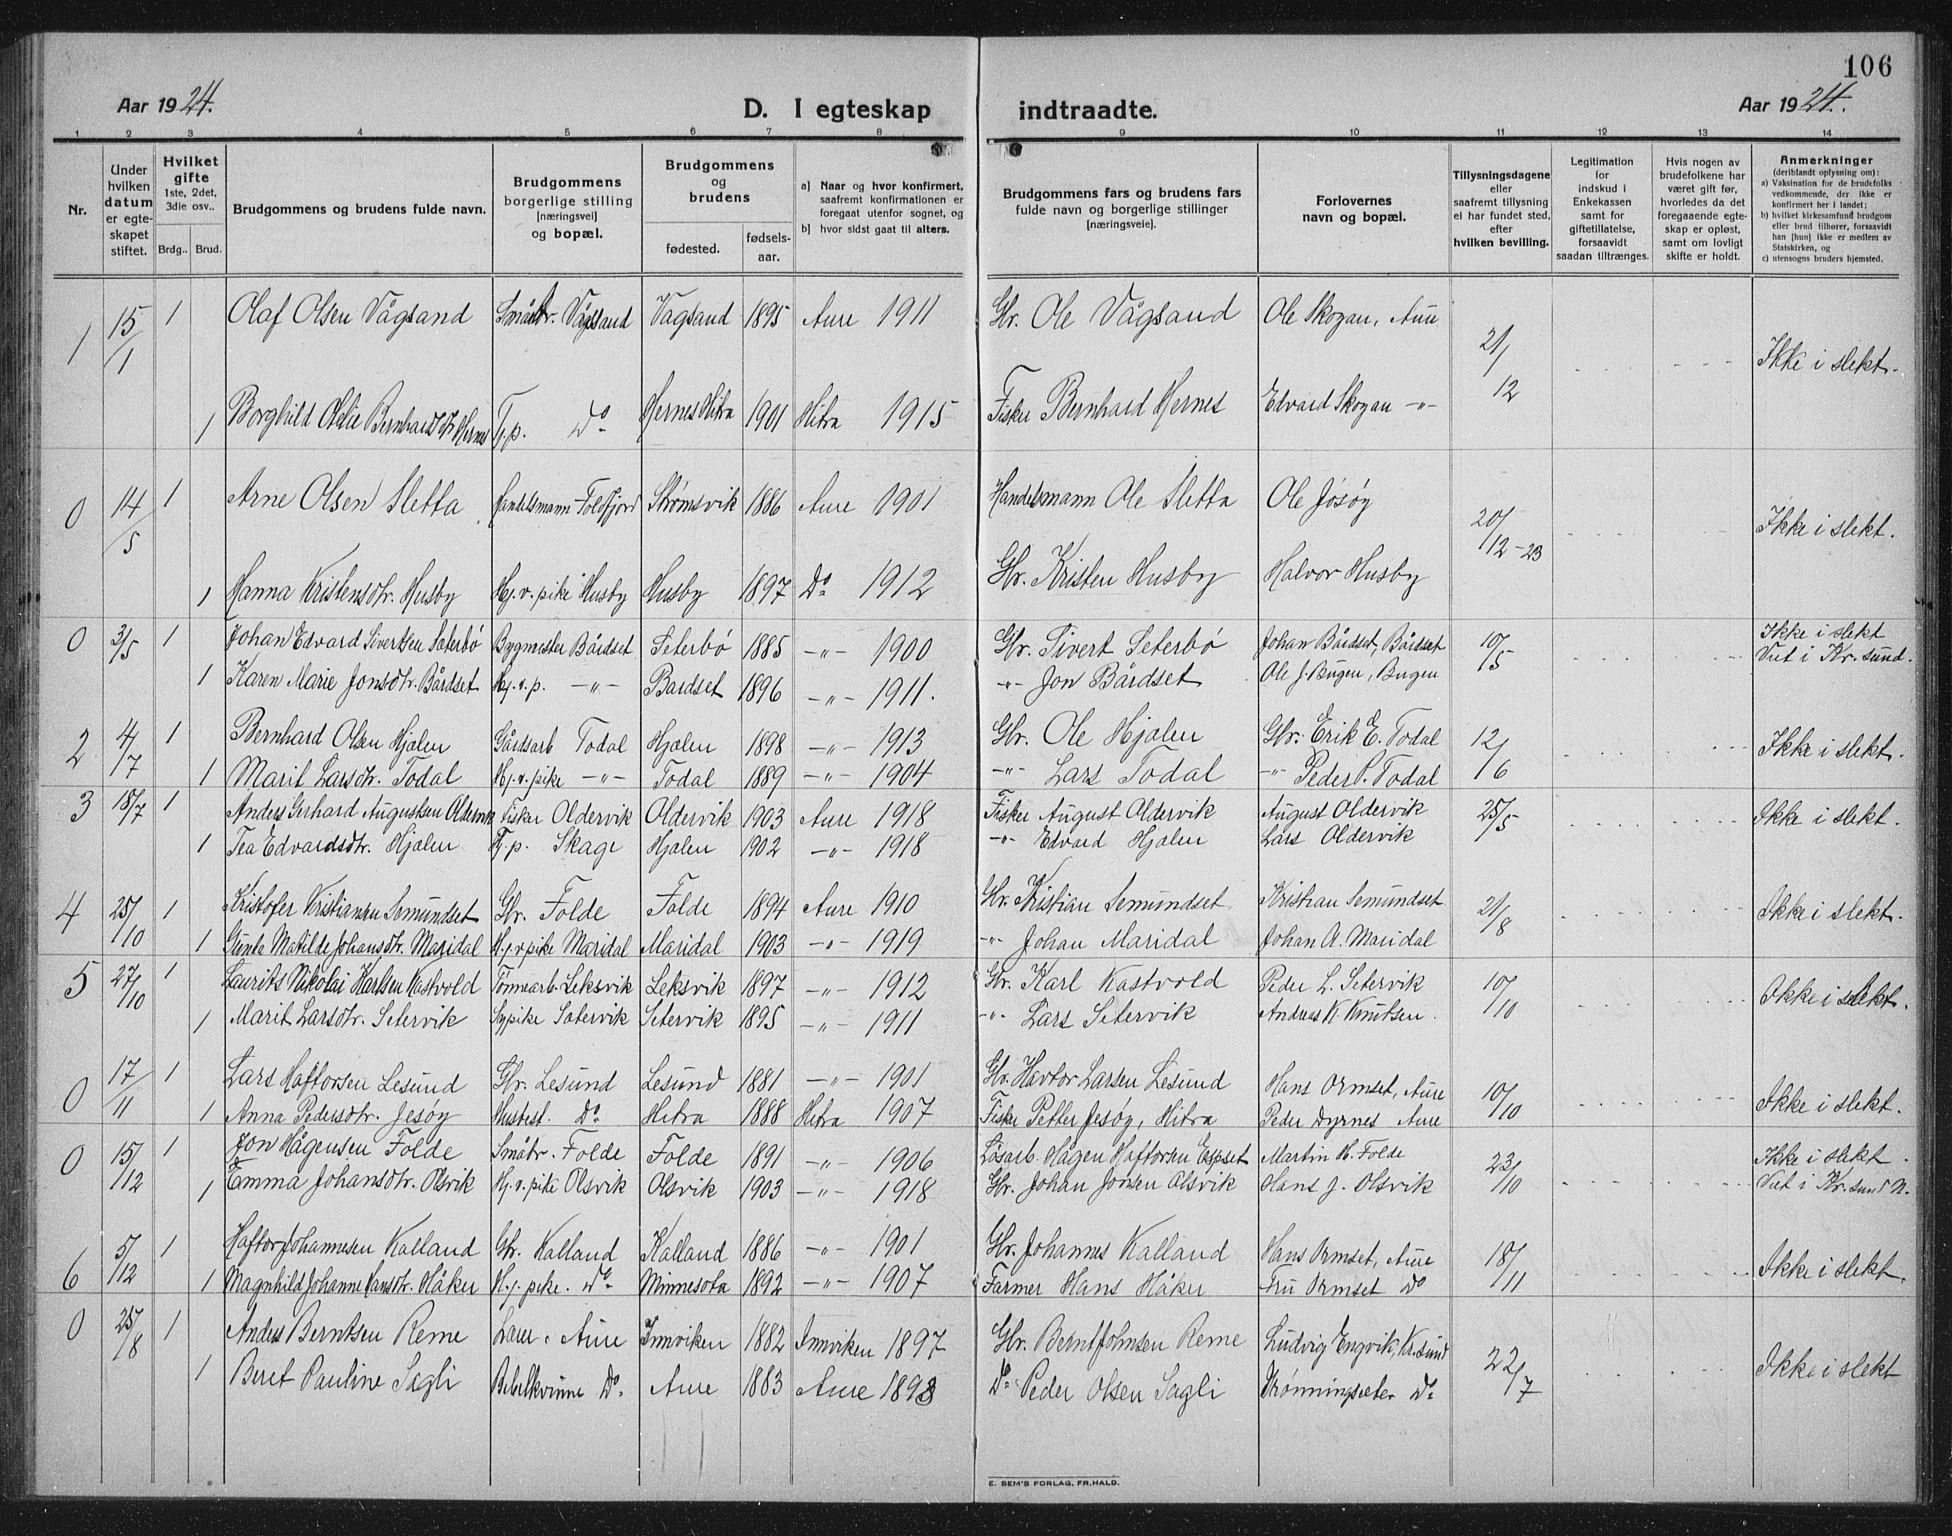 106
Aar 1924. D. I egteskap indtraadte. Aar 1924.
1 2 3 4 5 6 7 8 9 10 11 12 13 14
Nr.
Under hvilken datum er egteskapet stiftet.
Hvilket gifte 1ste, 2det, 3die osv..
Brdg.. Brud.
Brudgommens og brudens fulde navn.
Brudgommens borgerlige stilling [næringsvei] og bopæl.
Brudgommens og brudens
fødested. fødselsaar.
a] Naar og hvor konfirmert, saafremt konfirmationen er foregaat utenfor sognet, og
b] hvor sidst gaat til alters.
Brudgommens fars og brudens fars fulde navn og borgerlige stillinger [næringsveie].
Forlovernes navn og bopæl.
Tillysningsdagene eller saafremt tillysning ei har fundet sted, efter hvilken bevilling.
Legitimation for indskud i Enkekassen samt for giftetillatelse, forsaavidt saadan tiltrænges.
Hvis nogen av brudefolkene har været gift før, hvorledes da det foregaaende egteskap er opløst, samt om lovligt skifte er holdt.
Anmerkninger (deriblandt oplysning om):
a) Vaksination for de brudefolks vedkommende, der ikke er konfirmert her i landet;
b) hvilket kirkesamfund brudgom eller brud tilhører, forsaavidt han [hun] ikke er medlem av Statskirken, og
c) utensogns bruders hjemsted.
1 15/1 1 Olaf Olsen Vågsand Småbr. Vågsand Vagsand 1895 Aure 1911 Gbr. Ole Vågsand Ole Skogan, Aure 21/12 Ikke i slekt.
1 Borghild Oldie Bernhardsdtr Hernes Tj.p. Do Hernes Hitra 1901 Hitra 1915 Fisker Bernhard Hernes Edvard Skogan -"-
0 14/5 1 Arne Olsen Sletta Handelsmann Foldfjord Strømsvik 1886 Aure 1901 Handelsmann Ole Sletta Ole Jøsøy 20/12-23 Ikke i slekt.
1 Hanna Kristensdtr. Husby Hj.v.pike Husby Husby 1897 Do 1912 Gbr. Kristen Husby Halvor Husby
0 3/5 1 Johan Edvard Sivertsen Sæterbø Bygmester Bårdset Seterbø 1885 -"- 1900 Gbr. Sivert Seterbø Johan Bårdset, Bårdset 10/5 Ikke i slekt
1 Karen Marie Jonsdtr. Bårdset Hj.v.p. -"- Bardset 1896 -"- 1911. -"- Jon Bårdset Ole J. Bugen, Bugen Viet i Kr.sund.
2 4/7 1 Bernhard Olsen Hjalen Gårdsarb Todal Hjalen 1898 -"- 1913 Gbr. Ole Hjalen Gbr. Erik E. Todal 12/6 Ikke i slekt.
1 Marit Larsdtr. Todal Hj.v.pike -"- Todal 1889 -"- 1904 -"- Lars Todal -"- Peder P. Todal
3 18/7 1 Anders Gerhard Augustsen Oldervik Fisker Oldervik Oldervik 1903 Aure 1918 Fisker August Oldervik August Oldervik 25/5 Ikke i slekt.
1 Tea Edvardsdtr. Hjalen Tj.p. Skage Hjalen 1902 -"- 1918 -"- Edvard Hjalen Lars Oldervik
4 25/10 1 Kristofer Kristiansen Semundset Gbr. Folde Folde 1894 Aure 1910 Gbr. Kristian Semundset Kristian Semundset 21/8 Ikke i slekt.
1 Gunda Matilde Johansdtr. Maridal Hj.v.pike Maridal Maridal 1903 -"- 1919 -"- Johan Maridal Johan A. Maridal
5 27/10 1 Laurits Nikolai Karlsen Kastvold Tømmarb. Leksvik Leksvik 1897 -"- 1912 Gbr. Karl Kastvold Peder L. Setervik 10/10 Ikke i slekt.
1 Marit Larsdtr. Setervik Sypike Setervik Setervik 1895 -"- 1911 -"- Lars Setervik Andreas K. Knutsen.
0 17/11 1 Lars Haftorsen Lesund Gbr. Lesund Lesund 1881 -"- 1901 Gbr. Havtor Larsen Lesund Hans Ormset, Aure 10/10 Ikke i slekt.
1 Anna Pedersdtr. Jesøy Husbest. Do Hitra 1888 Hitra 1907 Fisker Petter Jesøy, Hitra Peder Dyrnes Aure
0 15/12 1 Jon Hågensen Folde Småbr. Folde Folde 1891 -"- 1906 Løsarb. Hågen Haftorsen Espset Martin H. Folde 23/10 Ikke i slekt.
1 Emma Johansdtr. Olsvik Hj.v.pike Olsvik Olsvik 1903 -"- 1918 Gbr. Johan Jonsen Olsvik Hans J. Olsvik Viet i Kr.sund N.
6 5/12 1 Haftor Johannesen Kalland Gbr. Kalland Kalland 1886 -"- 1901 Gbr. Johannes Kalland Hans Ormset, Aure 18/11 Ikke i slekt.
1 Magnhild Johanne Hansdtr. Håker H.j.pike. Do Minnesota 1892 -"- 1907 Farmer Hans Håker Fru Ormset Do
0 25/8 1 Anders Berntsen Reme Lærer, Aure Innviken 1882 Innviken 1897 Gbr. Bernt Johnsen Reme Ludvig Engvik, Kr.sund 22/7 Ikke i slekt
1 Beret Pauline Sagli Bibelkvinne Do. Aure 1883 Aure 1898 Do Peder Olsen Sagli Trønningseter Do
E. SEM'S FORLAG, FR.HALD.